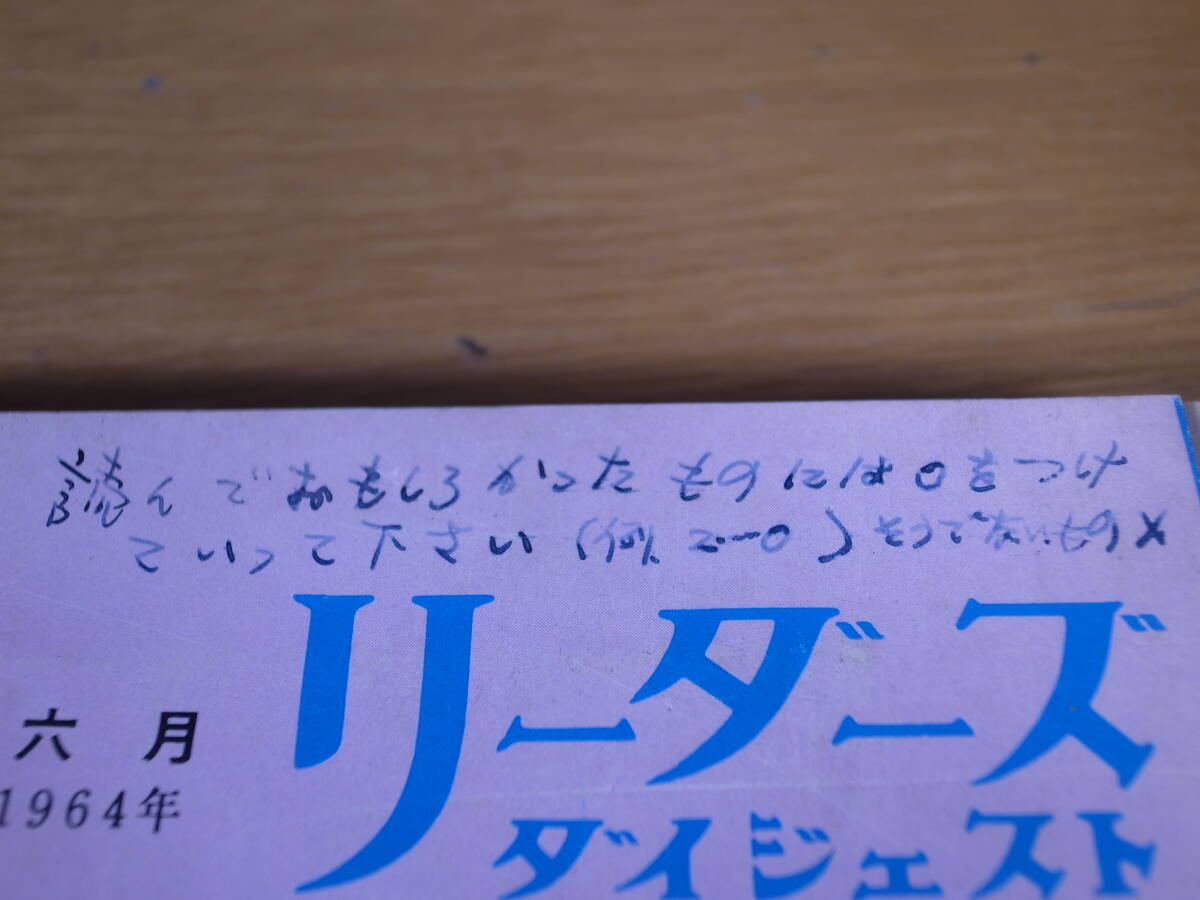 読んでおもしろかったものには○をつけ
ていって下さい(例 2…○)そうでないもの×
リーダーズ
六月
1964年
ダイジェスト